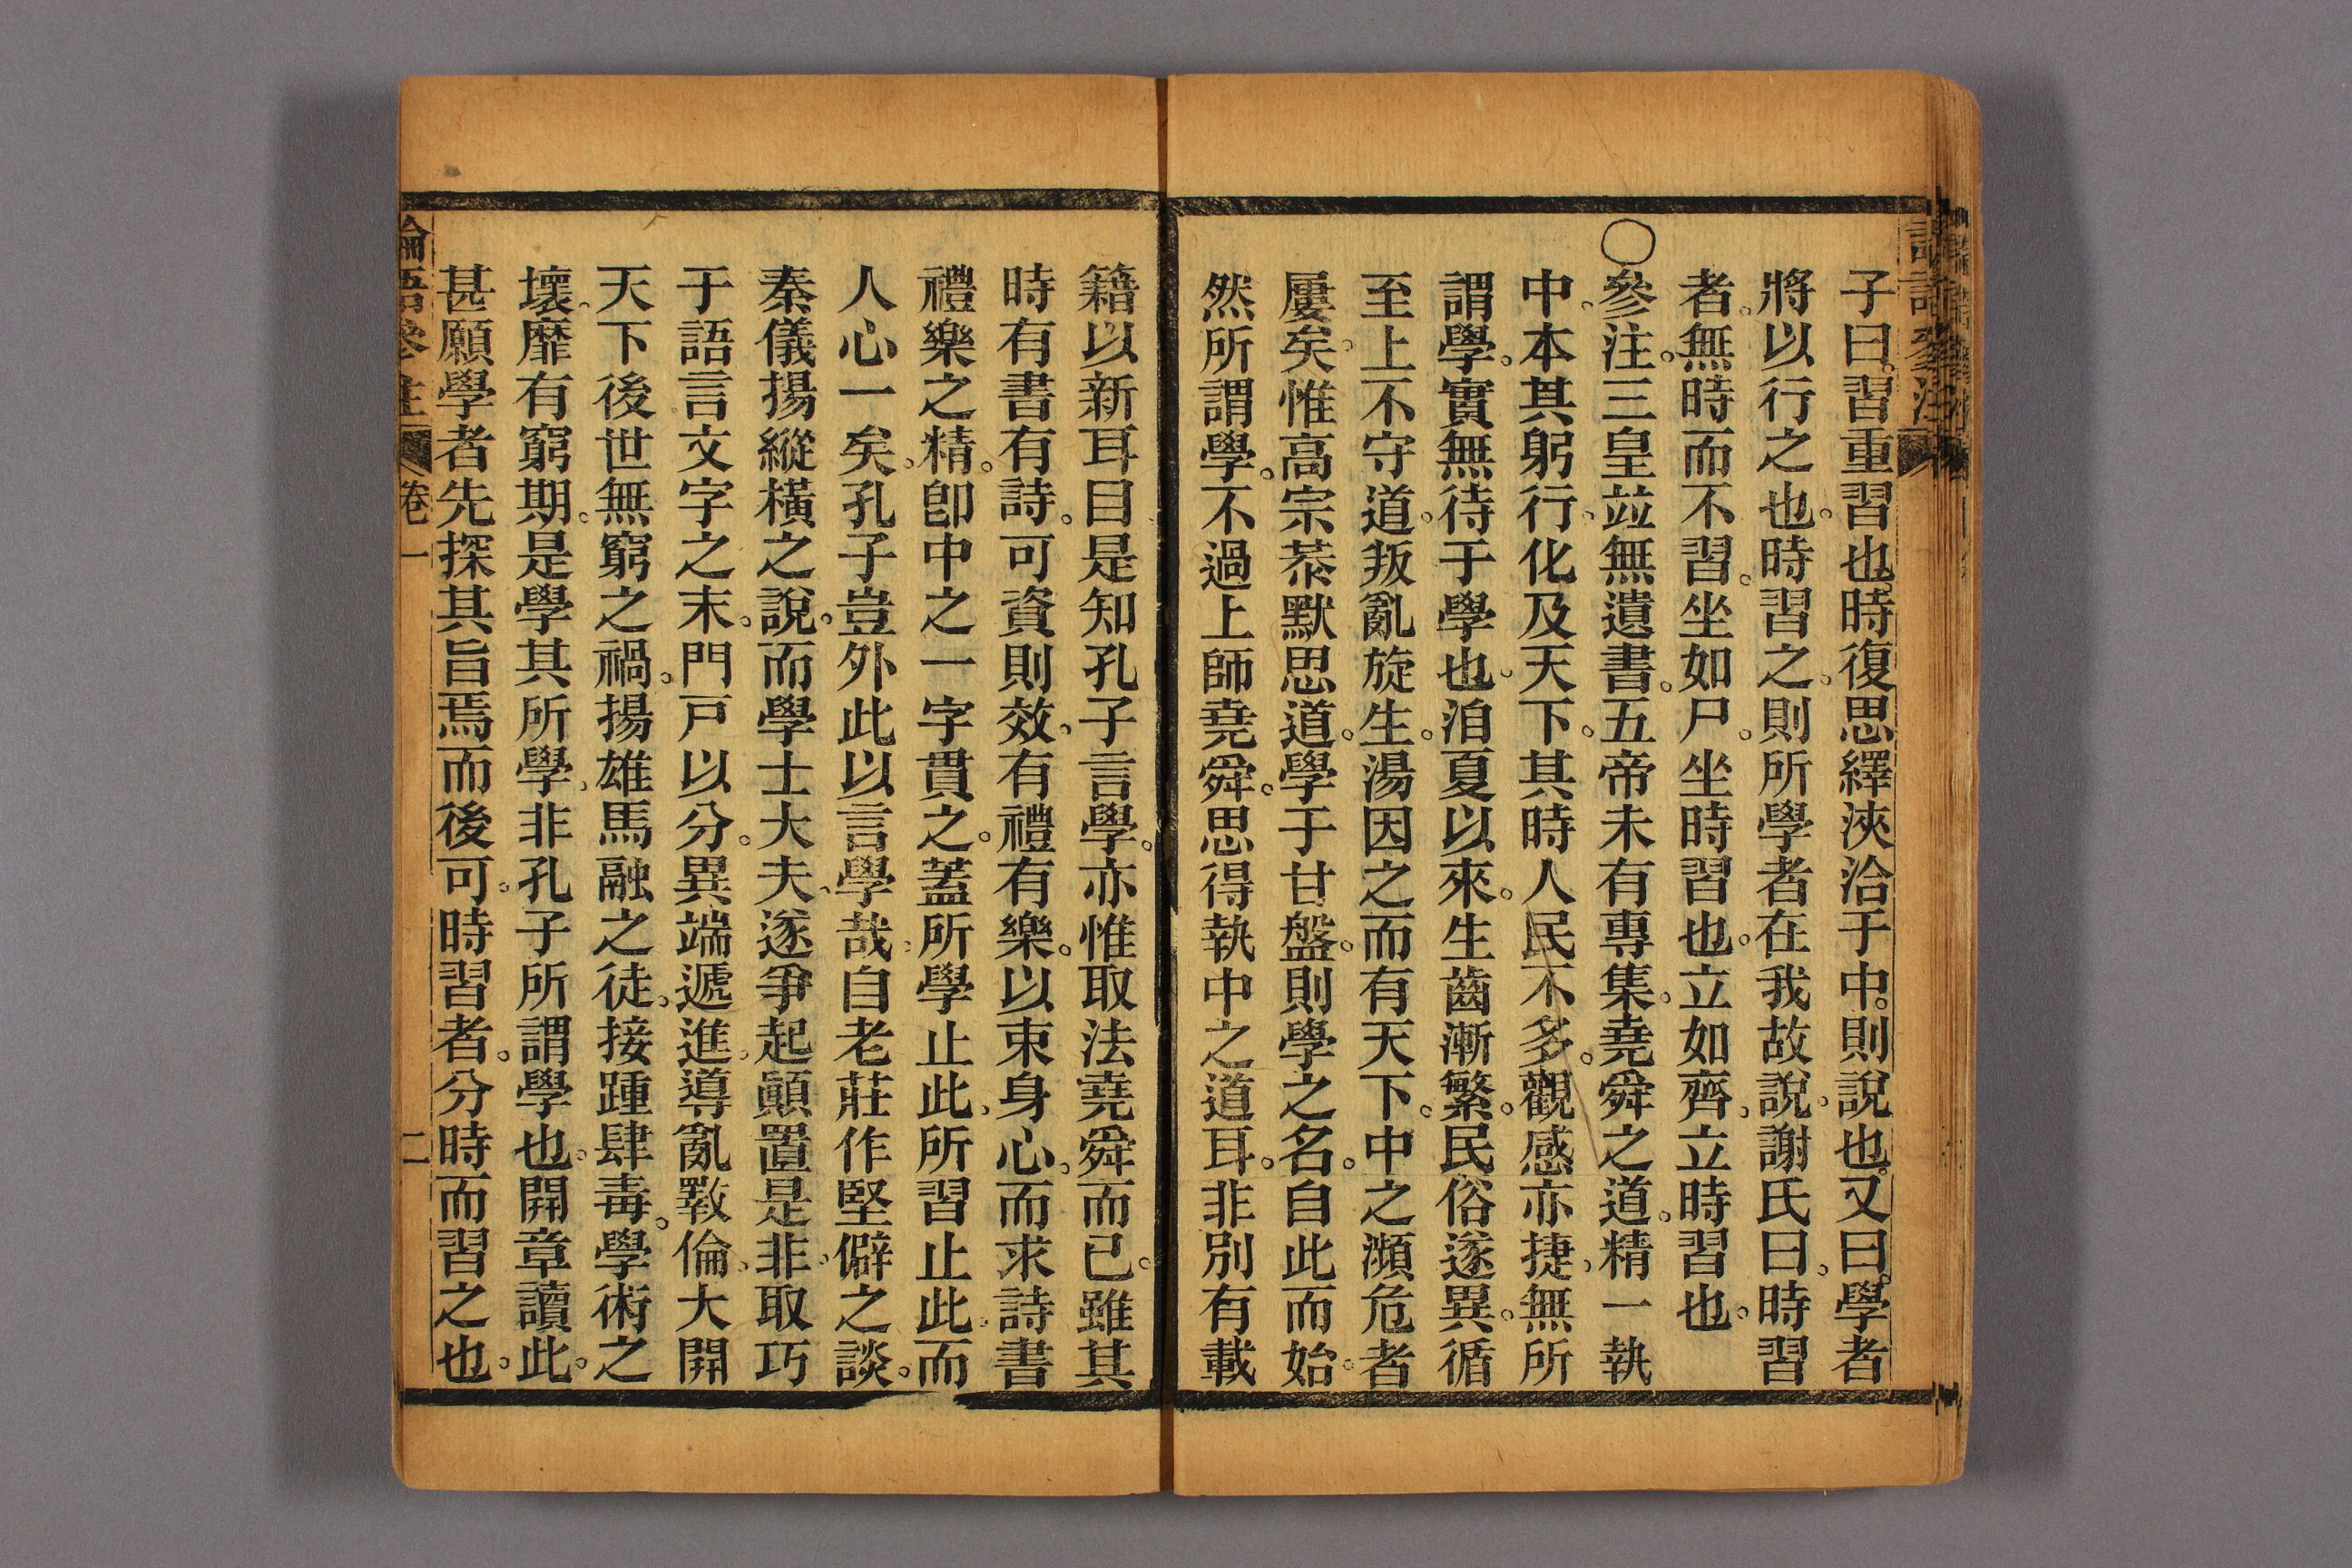 子曰。習重習也。時復思繹浹洽于中。則說也。又曰。學者
將以行之也。時習之。則所學者在我故說。謝氏曰。時習
者。無時而不習。坐如尸。坐時習也。立如齊。立時習也。
○參注。三皇竝無遺書。五帝未有專集。堯舜之道。精一執
中。本其躬行。化及天下。其時人民不多。觀感亦捷。無所
謂學。實無待于學也。洎夏以來。生齒漸繁。民俗遂異。循
至上不守道。叛亂旋生。湯因之而有天下。中之瀕危者
屢矣。惟高宗恭默思道。學于甘盤。則學之名。自此而始。
然所謂學。不過上師堯舜。思得執中之道耳。非別有載
籍以新耳目是知孔子言學。亦惟取法堯舜而已。雖其
時有書有詩。可資則效。有禮有樂。以束身心。而求詩書
禮樂之精。卽中之一字貫之。蓋所學止此。所習止此。而
人心一矣。孔子豈外此以言學哉。自老莊作堅僻之談。
秦儀揚縱橫之說。而學士大夫。遂爭起顚置是非。取巧
于語言文字之末。門戸以分。異端遞進。導亂斁倫。大開
天下後世無窮之禍。揚雄馬融之徒。接踵肆毒。學術之
壞。靡有窮期。是學其所學。非孔子所謂學也。開章讀此。
甚願學者先探其旨焉而後可。時習者。分時而習之也。
論語參注 卷一 二